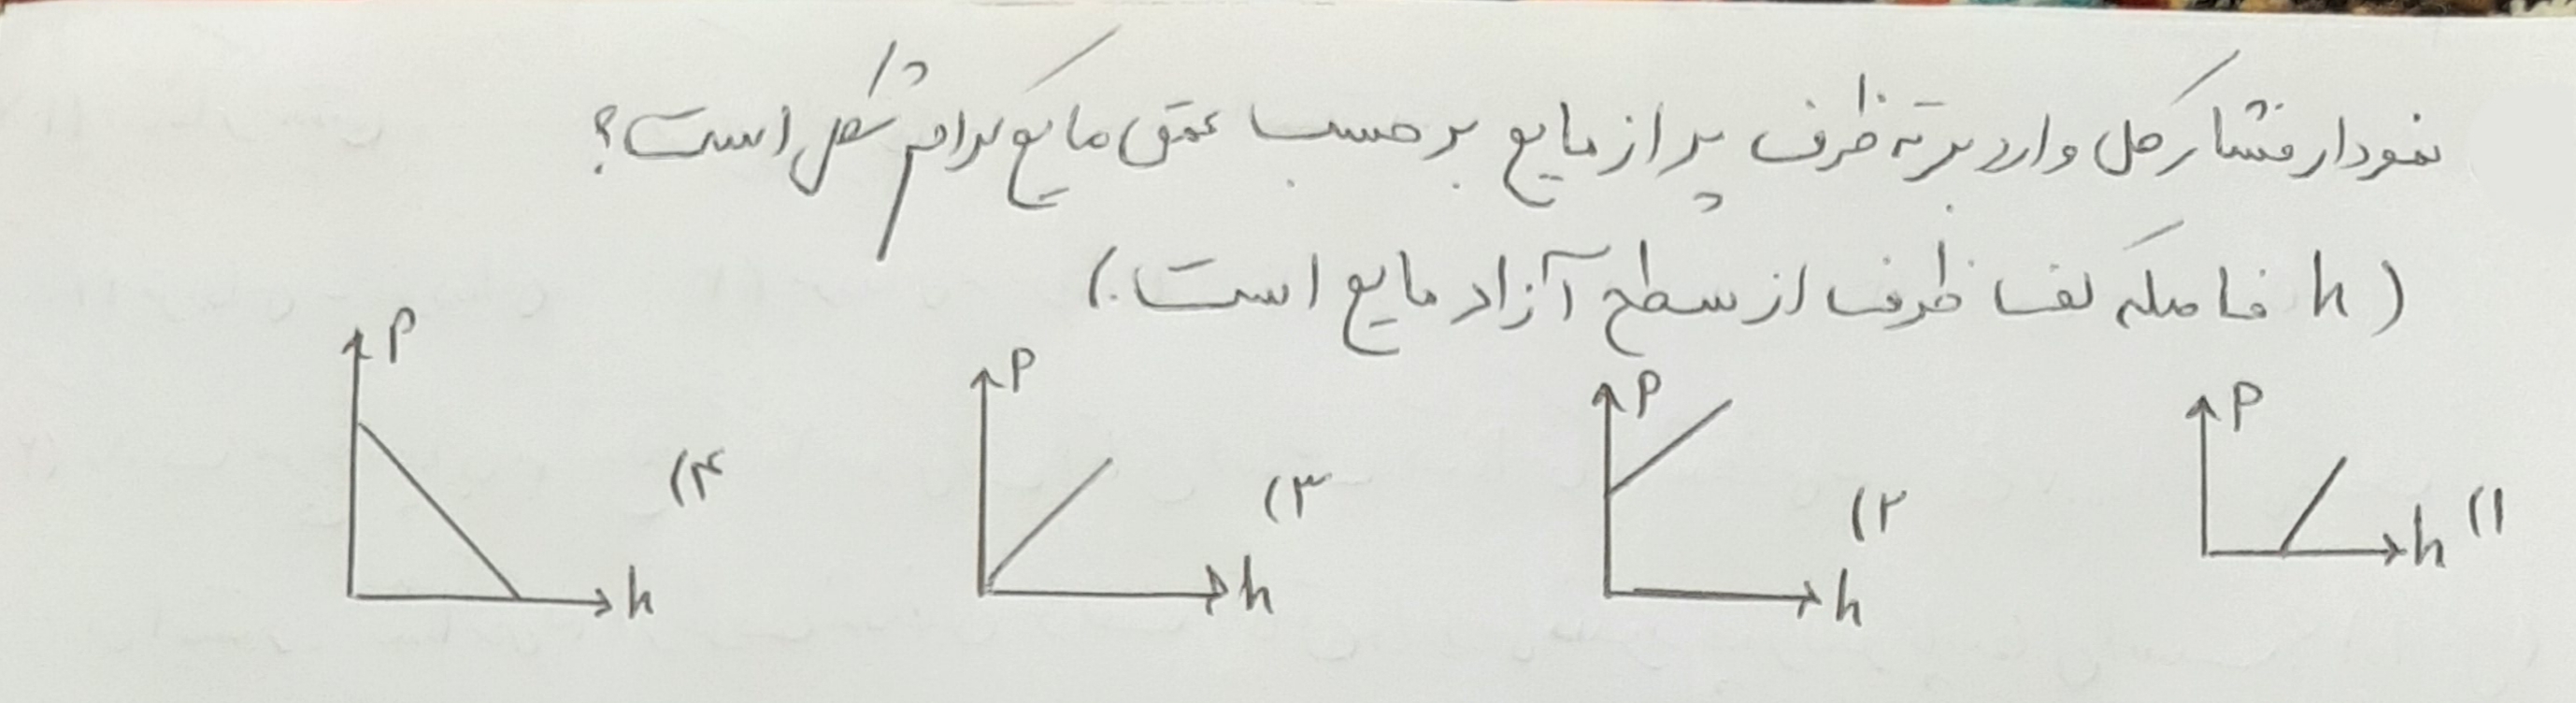 نمودار فشار کل وارد بر ته ظرف پر از مایع بر حسب عمق مایع کدام شکل است؟
( h فاصله کف ظرف از سطح آزاد مایع است.)
۱) P h
۲) P h
۳) P h
۴) P h